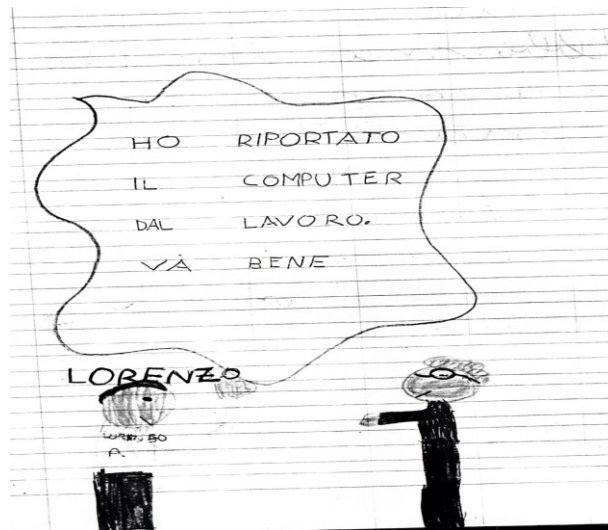 HO RIPORTATO
IL COMPUTER
DAL LAVORO.
VÀ BENE
LORENZO
A.